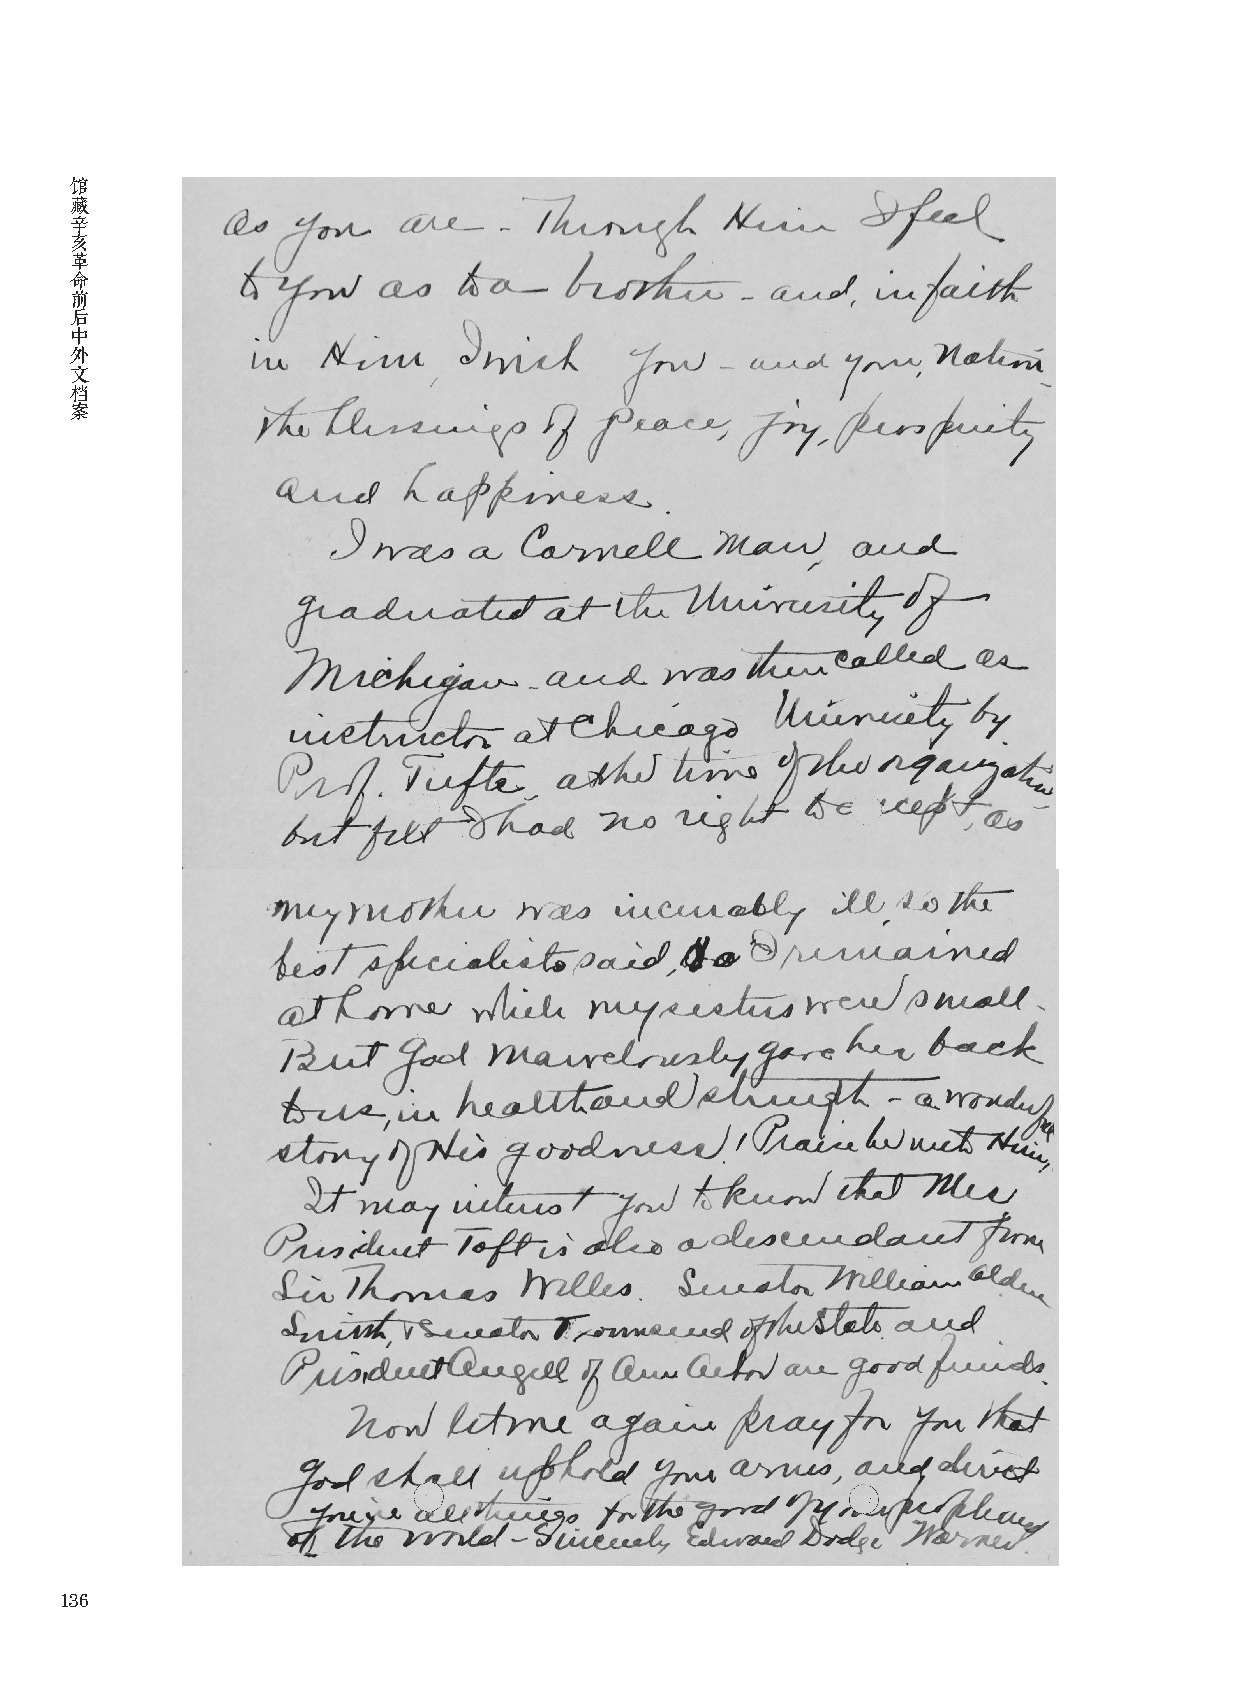 馆藏辛亥革命前后中外文档案
as you are - Through Him I feel
to you as to a brother - and, in faith
in Him, I wish you - and your Nation -
the blessings of peace, joy, prosperity
and happiness.
I was a Cornell man, and
graduated at the University of
Michigan - and was then called as
instructor at Chicago University by
Prof. Tufts, at the time of the organization
but felt I had no right to accept, as
my mother was incurably ill, so the
best specialists said, so I remained
at home while my sisters were small -
But God marvelously gave her back
to us, in health and strength - a wonderful
story of His goodness! Praise be unto Him,
It may interest you to know that Mrs
President Taft is also a descendant from
Sir Thomas Willes. Senator William Alden
Smith, & Senator Townsend of the State and
President Angell of Ann Arbor are good friends.
Now let me again pray for you that
God shall uphold your arms, and direct
you in all things for the good of your people and
of the world - Sincerely Edward Dodge Warner.
136